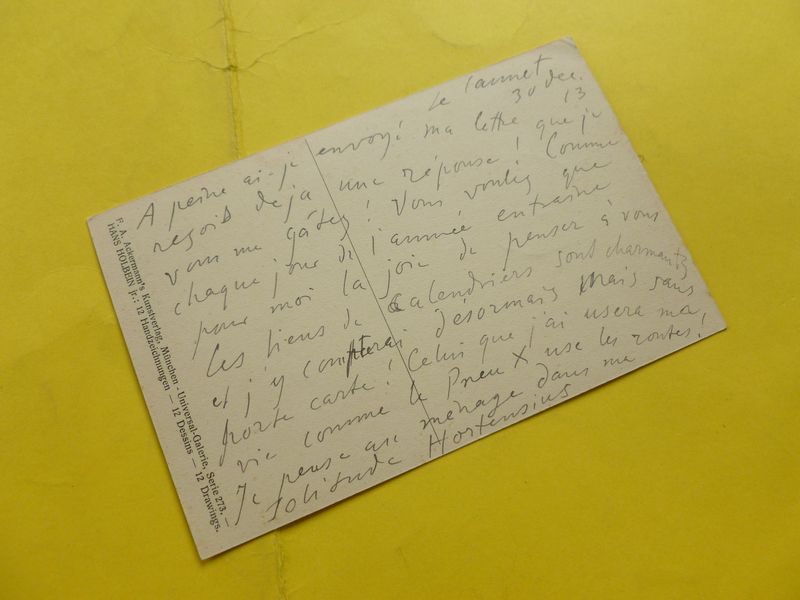 Le Cannet
30 dec. 13
A peine ai-je envoyé ma lettre que je
reçois déja une réponse! Comme
vous me gâtez! Vous voulez que
chaque jour de l'année entraîne
pour moi la joie de penser à vous
les liens de Calendriers sont charmants
et j'y compterai désormais Mais sans
porte carte! Celui que j'ai usera ma
vie comme le Pneu X use les routes!
Je pense au ménage dans ma
solitude Hortensius
F. A. Ackermann's Kunstverlag, München - Universal-Galerie, Serie 273.
HANS HOLBEIN jr.: 12 Handzeichnungen — 12 Dessins — 12 Drawings.